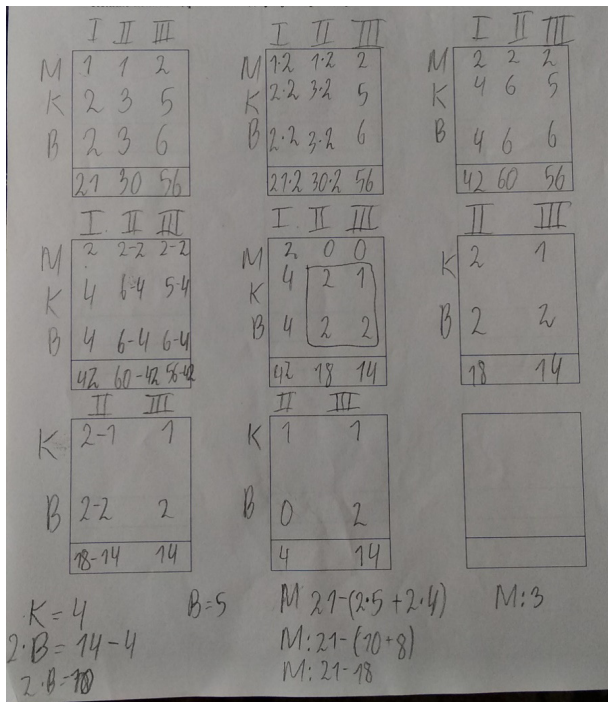 I II III
M 1 1 2
K 2 3 5
B 2 3 6
21 30 56
I II III
M 1·2 1·2 2
K 2·2 3·2 5
B 2·2 3·2 6
21·2 30·2 56
I II III
M 2 2 2
K 4 6 5
B 4 6 6
42 60 56
I II III
M 2 2-2 2-2
K 4 6-4 5-4
B 4 6-4 6-4
42 60-42 56-42
I II III
M 2 0 0
K 4 2 1
B 4 2 2
42 18 14
II III
K 2 1
B 2 2
18 14
II III
K 2-1 1
B 2-2 2
18-14 14
II III
K 1 1
B 0 2
4 14
K = 4
2·B = 14-4
2·B = 10
B=5
M 21-(2·5+2·4)
M: 21-(10+8)
M: 21-18
M: 3